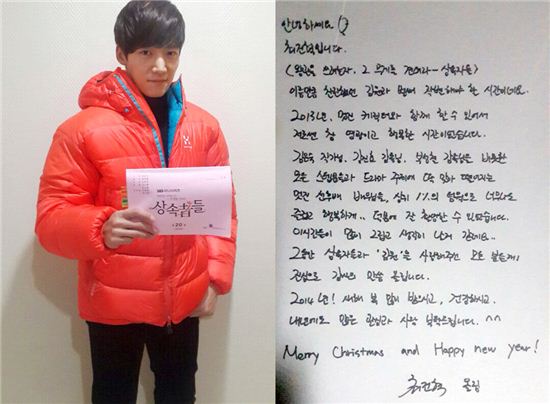 상속者들
20
안녕하세요
최진혁입니다.
(왕관을 쓰려는자, 그 무게를 견뎌라 - 상속자들)
이름만큼 찬란했던 김원과 함께 작별해야 할 시간이네요.
2013년, 멋진 캐릭터와 함께 할 수 있어서
저로선 참 영광이고 행복한 시간이었습니다.
김은숙 작가님, 강신효 감독님, 부성철 감독님을 비롯한
모든 스텝분들과 드라마 주제에
멋진 선후배 배우분들, 상위 1%의 얼굴로 너무나도
즐겁고 행복하게.. 덕분에 잘 촬영할 수 있었습니다.
이시간들이 많이 그립고 생각이 나겠 같네요..
그동안 상속자들과 "김원"을 사랑해주신 모든 분들께
진심으로 감사의 말씀 올립니다.
2014년! 새해 복 많이 받으시고, 건강하시고.
내년에도 많은 관심과 사랑 부탁드립니다. ^^
Merry Christmas and Happy new year!
최진혁 올림